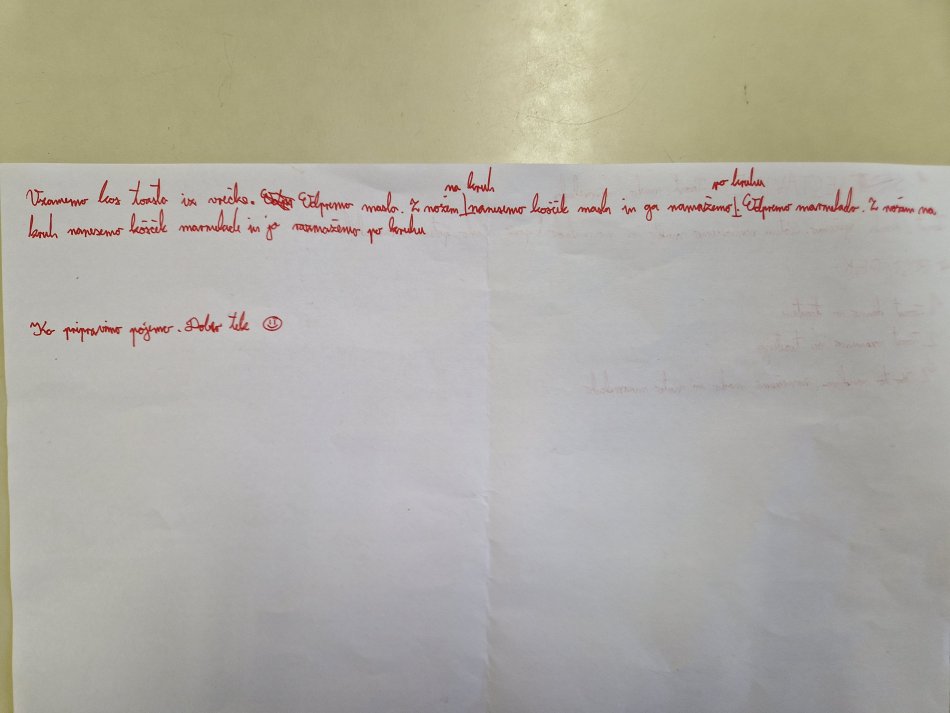 Vzamemo kos toasta iz vrečke. Odpremo maslo. Z nožem na kruh nanesemo košček masla in ga namažemo po kruhu. Odpremo marmelado. Z nožem na
kruh nanesemo košček marmelade in jo razmažemo po kruhu
Ko pripravimo pojemo. Dober tek